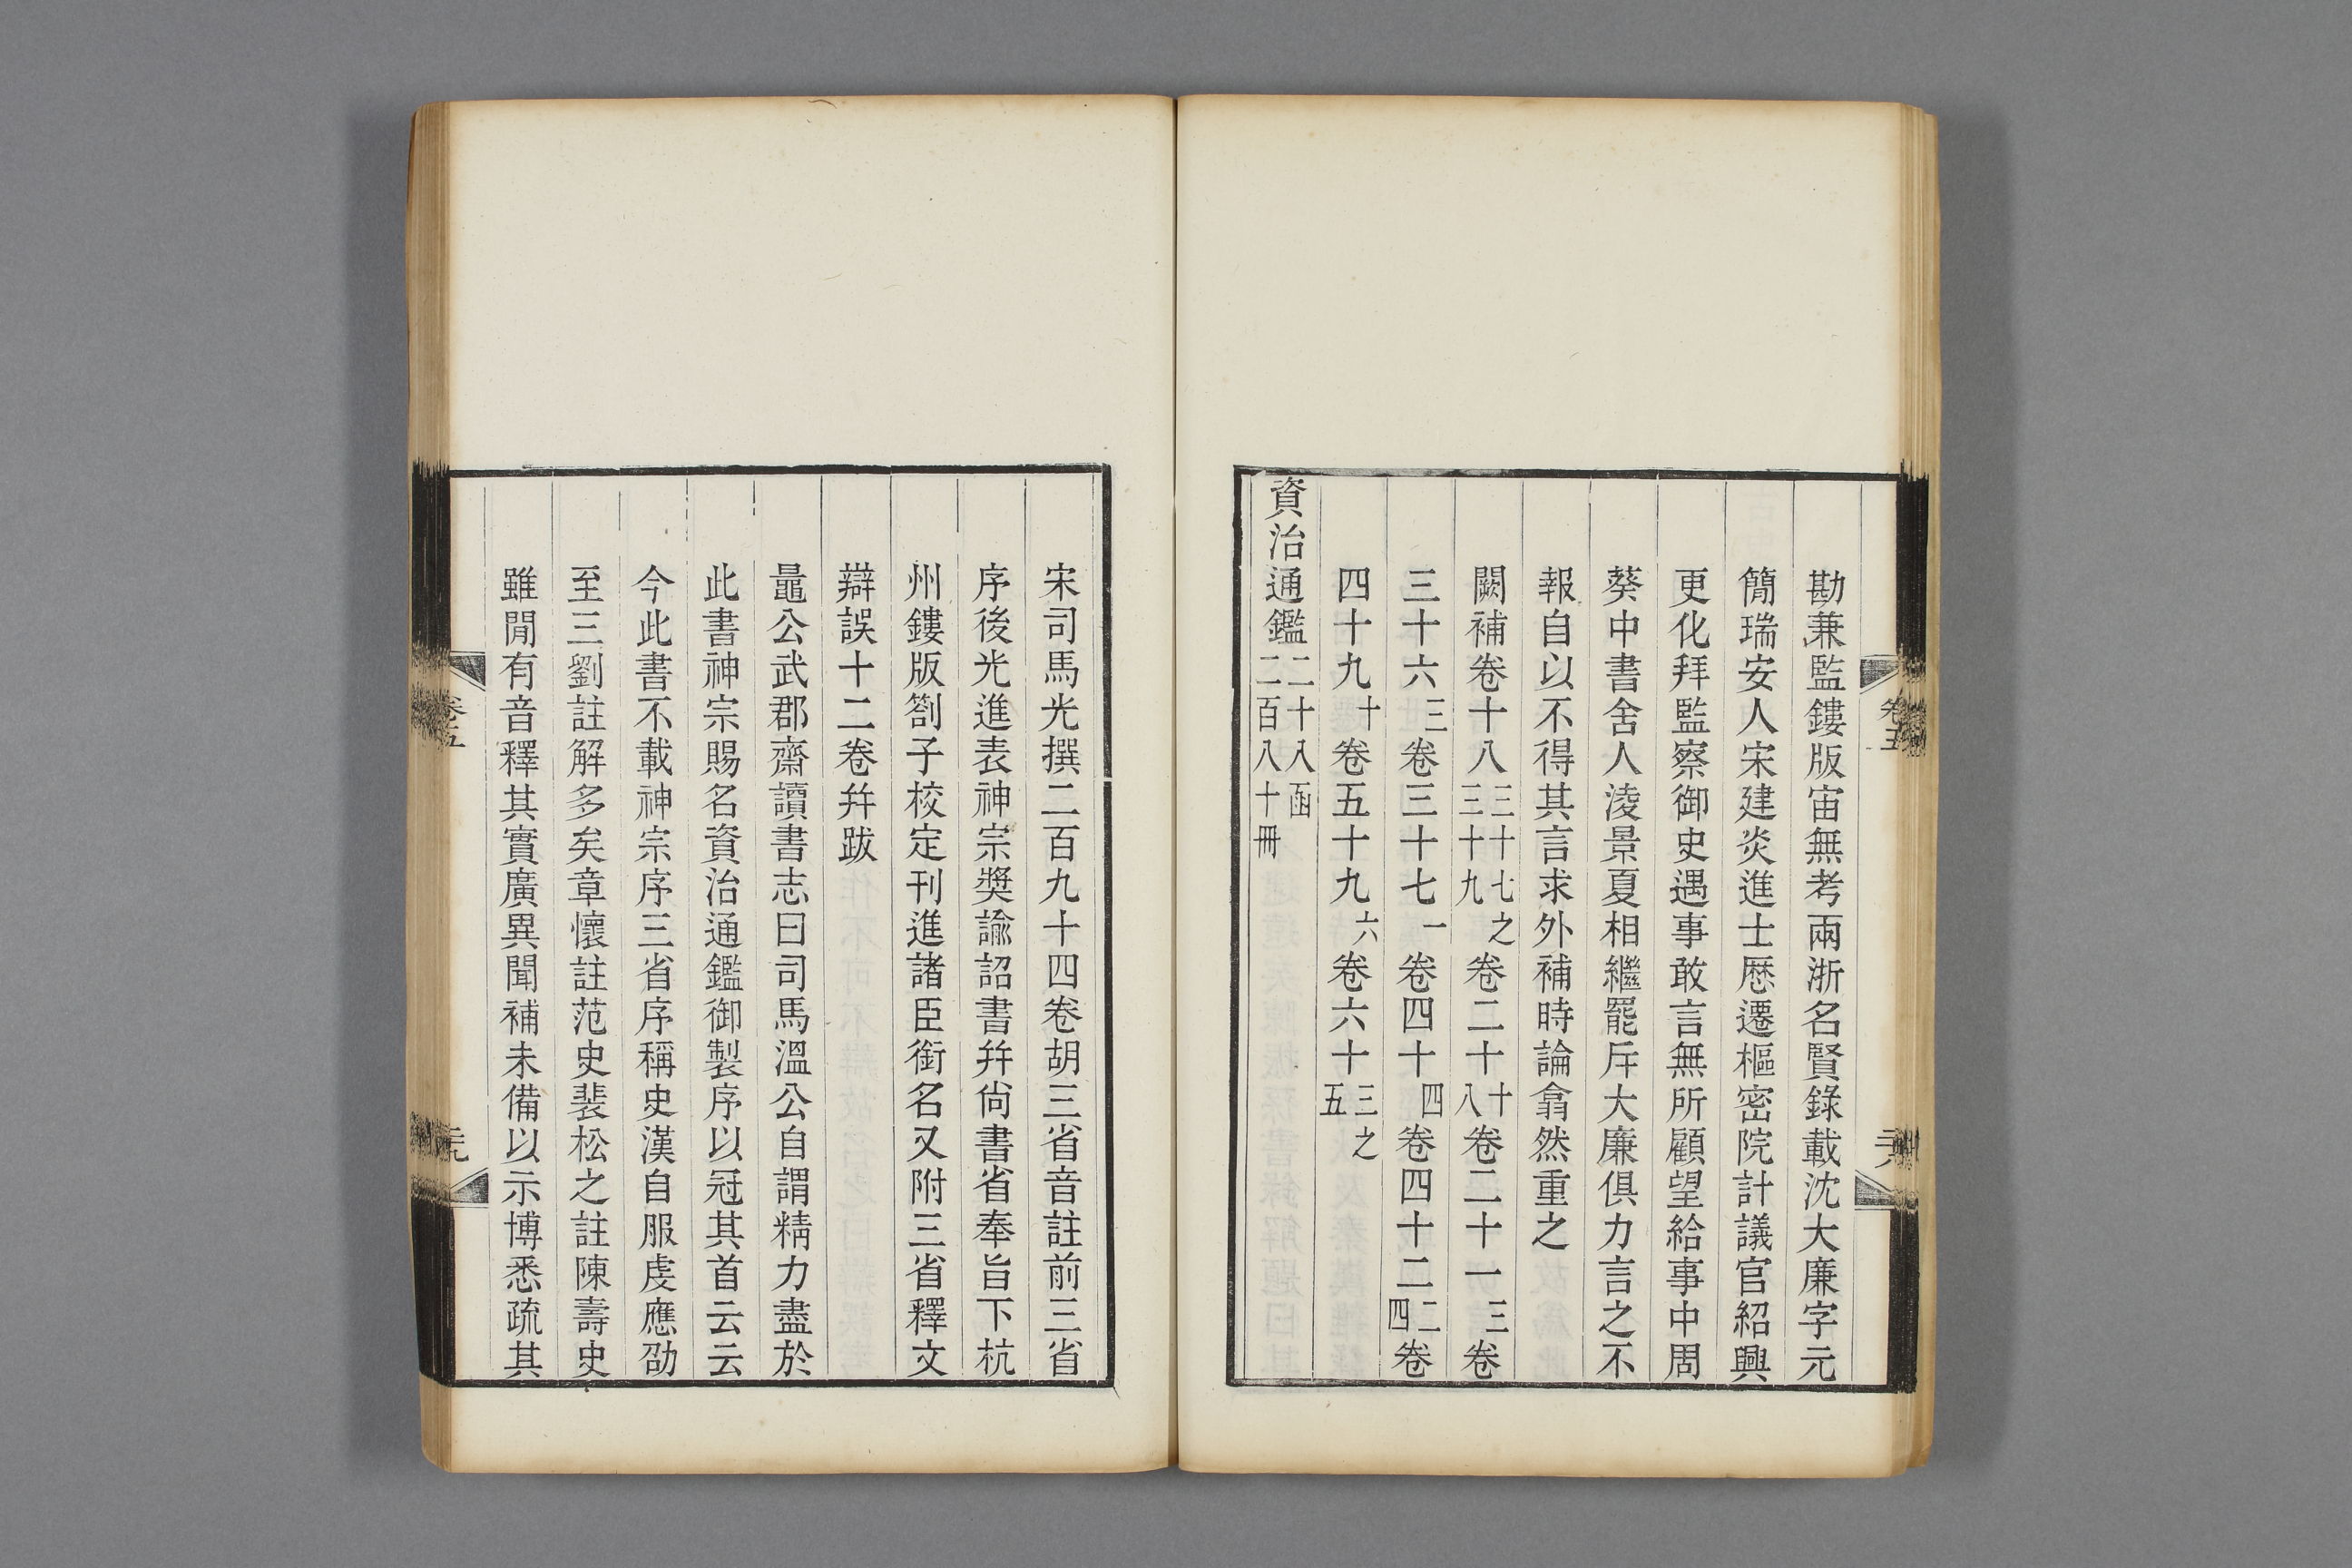 勘兼監鏤版宙無考兩浙名賢錄載沈大廉字元
簡瑞安人宋建炎進士歷遷樞密院計議官紹興
更化拜監察御史遇事敢言無所顧望給事中周
葵中書舍人淩景夏相繼罷斥大廉俱力言之不
報自以不得其言求外補時論翕然重之
闕補卷十八三十七之三十九卷二十十八卷二十一三卷
三十六三卷三十七一卷四十四卷四十二二四卷
四十九十卷五十九六卷六十三之五
資治通鑑二十八函二百八十冊
卷五
二十八
宋司馬光撰二百九十四卷胡三省音註前三省
序後光進表神宗獎諭詔書幷尙書省奉旨下杭
州鏤版劄子校定刊進諸臣銜名又附三省釋文
辯誤十二卷幷跋
鼂公武郡齋讀書志曰司馬溫公自謂精力盡於
此書神宗賜名資治通鑑御製序以冠其首云云
今此書不載神宗序三省序稱史漢自服虔應劭
至三劉註解多矣章懷註范史裴松之註陳壽史
雖閒有音釋其實廣異聞補未備以示博悉疏其
卷五
二十九